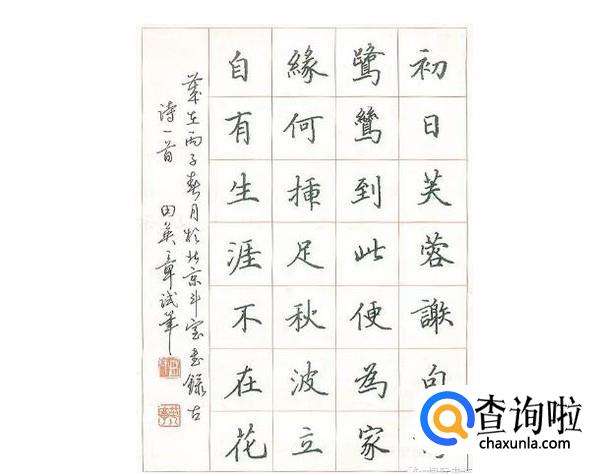 初日芙蓉謝
鷺鷥到此便為家
緣何插足秋波立
自有生涯不在花
歲在丙子春月於北京斗室書錄古
诗一首 田英章试筆
查询啦
chaxunla.com